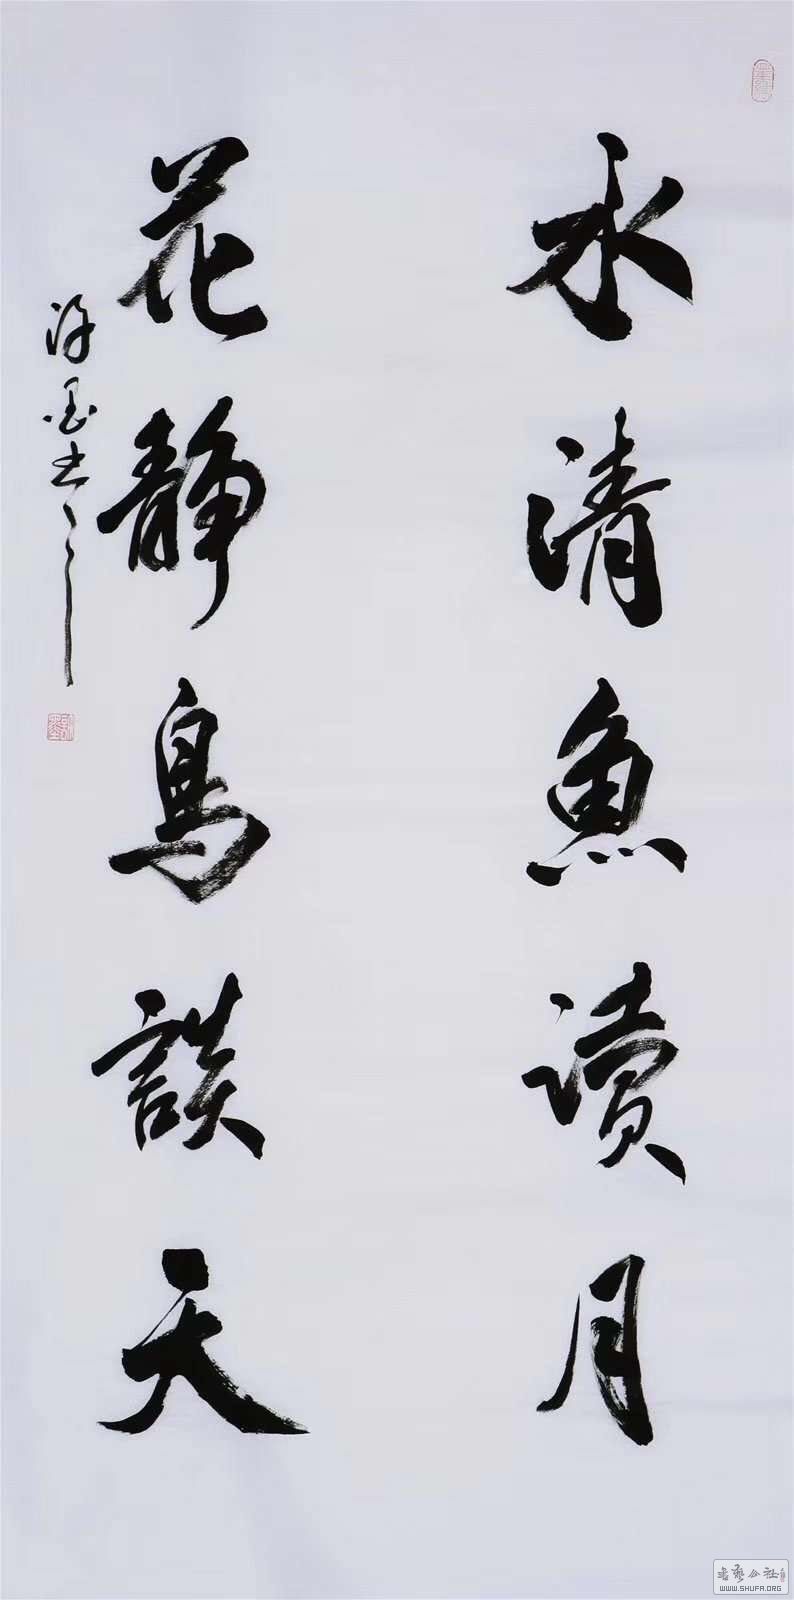 水清魚读月
花靜鳥談天
书艺公社
WWW.SHUFA.ORG